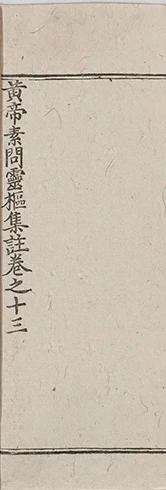 黃帝素問靈樞集註卷之十三